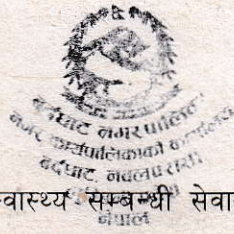 बर्दघाट नगरपालिका
नगर कार्यपालिकाको कार्यालय
बर्दघाट, नवलपरासी
नेपाल
स्वास्थ्य सम्बन्धी सेवा